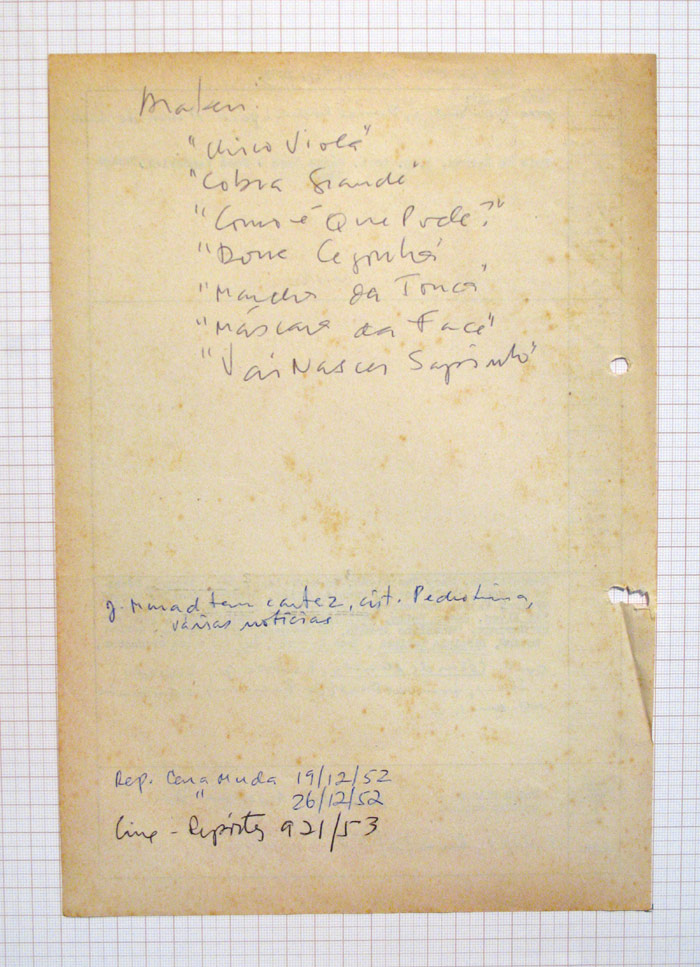 "Chico Viola"
"Cobra Grande"
"Como é Que Pode?"
"Dona Cegonha"
"Marcha da Touca"
"Máscara da Face"
"Vai Nascer Sapinho"
J. Murad tem cartaz, cit. Pedro Lima,
várias notícias
Rep. Cena Muda 19/12/52
" 26/12/52
Cine-Repórter 921/53